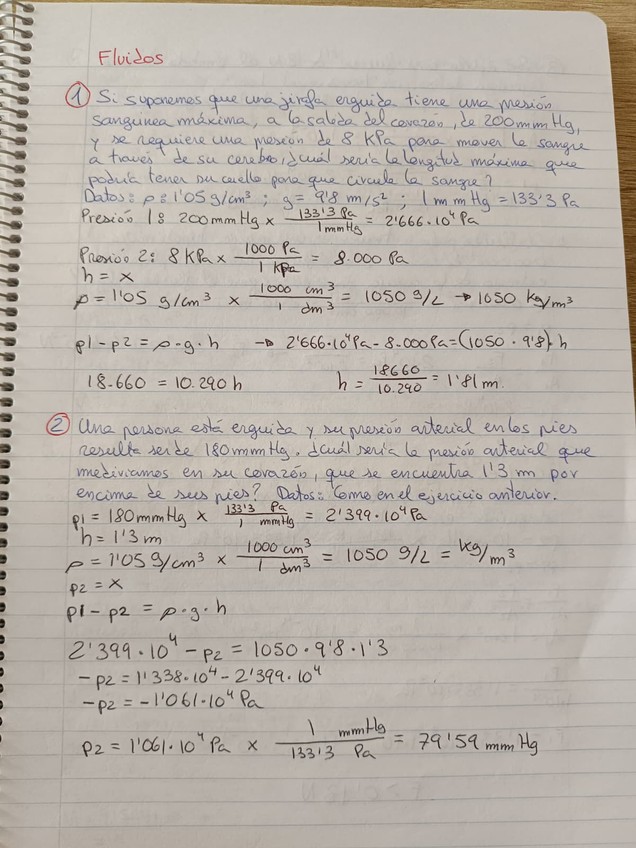 Fluidos
① Si suponemos que una jirafa erguida tiene una presión
sanguínea máxima, a la salida del corazón, de 200 mmHg,
y se requiere una presión de 8 KPa para mover la sangre
a través de su cerebro, ¿cuál sería la longitud máxima que
podría tener su cuello para que circule la sangre?
Datos: ρ: 1'05 g/cm³ ; g = 9'8 m/s² ; 1 mm Hg = 133'3 Pa
Presión 1: 200 mmHg × 133'3 Pa / 1 mmHg = 2'666·10⁴ Pa
Presión 2: 8 KPa × 1000 Pa / 1 KPa = 8.000 Pa
h = x
ρ = 1'05 g/cm³ × 1000 cm³ / 1 dm³ = 1050 g/L → 1050 kg/m³
p1 - p2 = ρ·g·h → 2'666·10⁴ Pa - 8.000 Pa = (1050 · 9'8)·h
18.660 = 10.290 h h = 18660 / 10.290 = 1'81 m.
② Una persona está erguida y su presión arterial en los pies
resulta ser de 180 mmHg. ¿Cuál sería la presión arterial que
mediríamos en su corazón, que se encuentra 1'3 m por
encima de sus pies? Datos: Como en el ejercicio anterior.
p1 = 180 mmHg × 133'3 Pa / 1 mmHg = 2'399·10⁴ Pa
h = 1'3 m
ρ = 1'05 g/cm³ × 1000 cm³ / 1 dm³ = 1050 g/L = kg/m³
p2 = x
p1 - p2 = ρ·g·h
2'399·10⁴ - p2 = 1050·9'8·1'3
-p2 = 1'338·10⁴ - 2'399·10⁴
-p2 = -1'061·10⁴ Pa
p2 = 1'061·10⁴ Pa × 1 mmHg / 133'3 Pa = 79'59 mmHg